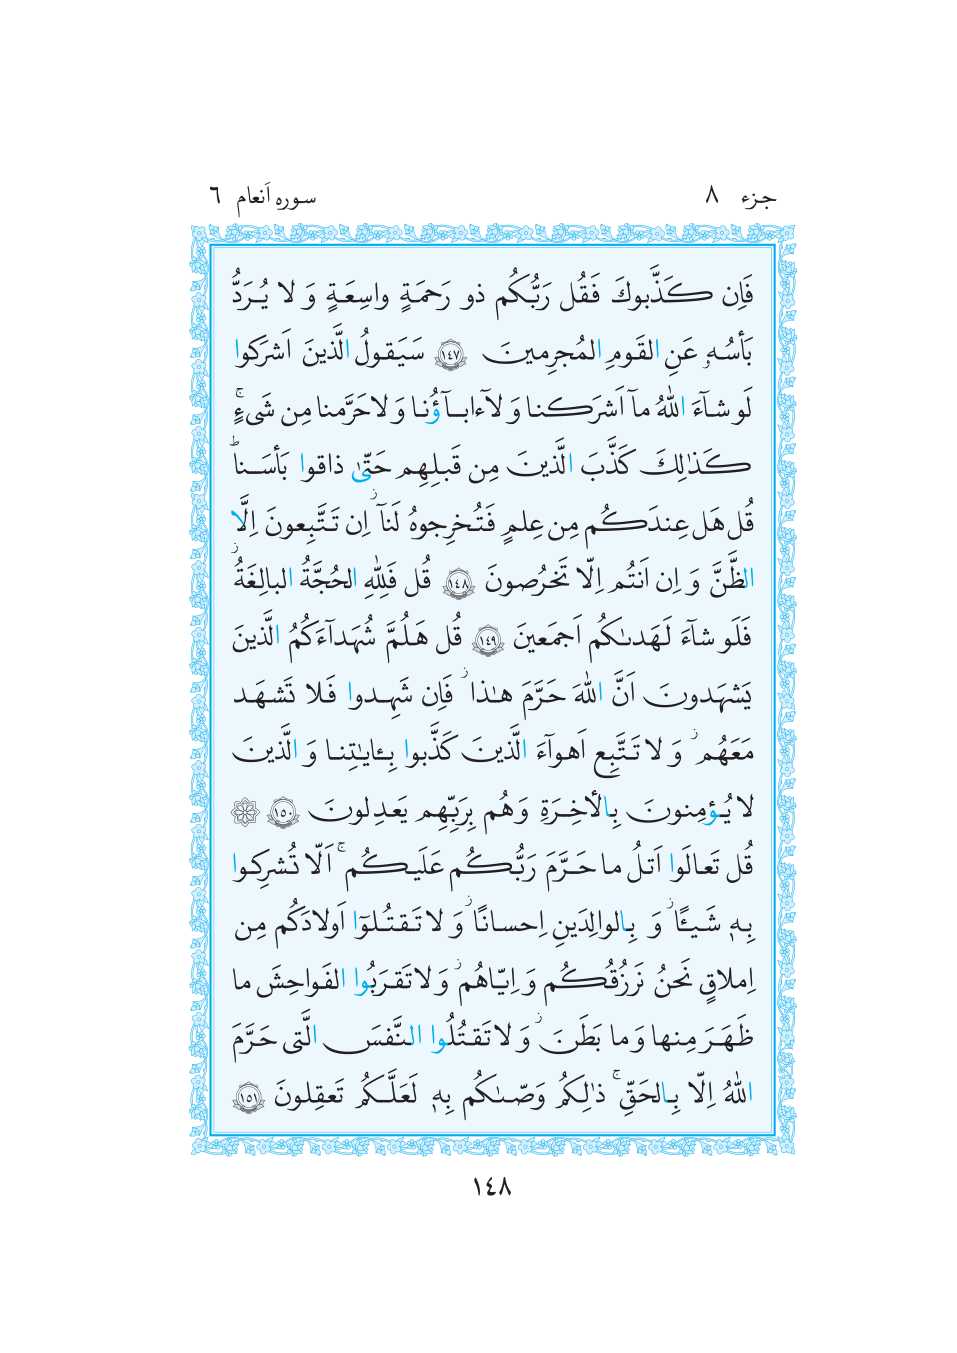 جزء ٨
سوره اَنعام ٦
فَاِن كَذَّبوكَ فَقُل رَبُّكُم ذو رَحمَةٍ واسِعَةٍ وَ لا يُرَدُّ
بَأسُهۥ عَنِ القَومِ المُجرِمينَ ١٤٧ سَيَقولُ الَّذينَ اَشرَكوا
لَو شآءَ اللهُ مآ اَشرَكنا وَ لآ ءابآؤُنا وَ لا حَرَّمنا مِن شَىءٍۚ
كَذٰلِكَ كَذَّبَ الَّذينَ مِن قَبلِهِم حَتّىٰ ذاقوا بَأسَناؕ
قُل هَل عِندَكُم مِن عِلمٍ فَتُخرِجوهُ لَنآۖ اِن تَتَّبِعونَ اِلَّا
الظَّنَّ وَ اِن اَنتُم اِلّا تَخرُصونَ ١٤٨ قُل فَلِلّٰهِ الحُجَّةُ البالِغَةُۖ
فَلَو شآءَ لَهَدىٰكُم اَجمَعينَ ١٤٩ قُل هَلُمَّ شُهَدآءَكُمُ الَّذينَ
يَشهَدونَ اَنَّ اللهَ حَرَّمَ هٰذاۖ فَاِن شَهِدوا فَلا تَشهَد
مَعَهُمۖ وَ لا تَتَّبِع اَهوآءَ الَّذينَ كَذَّبوا بِـٔايٰتِنا وَ الَّذينَ
لا يُؤمِنونَ بِالأخِرَةِ وَ هُم بِرَبِّهِم يَعدِلونَ ١٥٠
قُل تَعالَوا اَتلُ ما حَرَّمَ رَبُّكُم عَلَيكُمۚ اَلّا تُشرِكوا
بِهٖ شَيـًٔاۖ وَ بِالوالِدَينِ اِحسانًاۖ وَ لا تَقتُلوٓا اَولادَكُم مِن
اِملاقٍ نَحنُ نَرزُقُكُم وَ اِيّاهُمۖ وَ لا تَقرَبُوا الفَواحِشَ ما
ظَهَرَ مِنها وَ ما بَطَنَۖ وَ لا تَقتُلُوا النَّفسَ الَّتى حَرَّمَ
اللهُ اِلّا بِالحَقِّۚ ذٰلِكُم وَصّىٰكُم بِهٖ لَعَلَّكُم تَعقِلونَ ١٥١
١٤٨